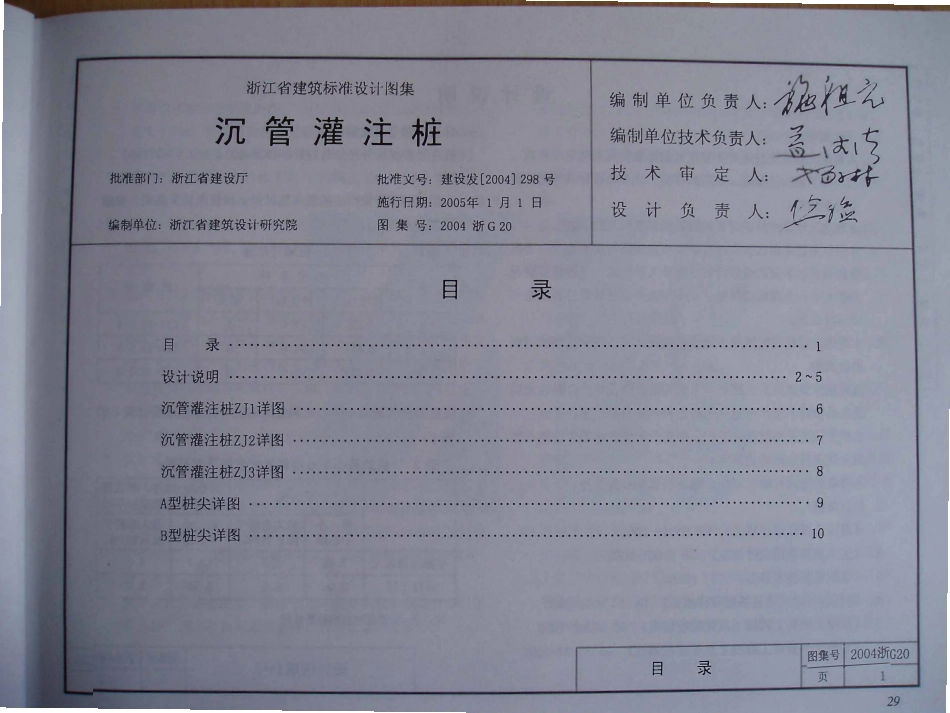 浙江省建筑标准设计图集
沉管灌注桩
批准部门：浙江省建设厅
批准文号：建设发[2004]298号
施行日期：2005年1月1日
编制单位：浙江省建筑设计研究院
图集号：2004浙G20
编制单位负责人：
编制单位技术负责人：
技术审定人：
设计负责人：
目 录
目 录 1
设计说明 2~5
沉管灌注桩ZJ1详图 6
沉管灌注桩ZJ2详图 7
沉管灌注桩ZJ3详图 8
A型桩尖详图 9
B型桩尖详图 10
目 录
图集号 2004浙G20
页 1
29